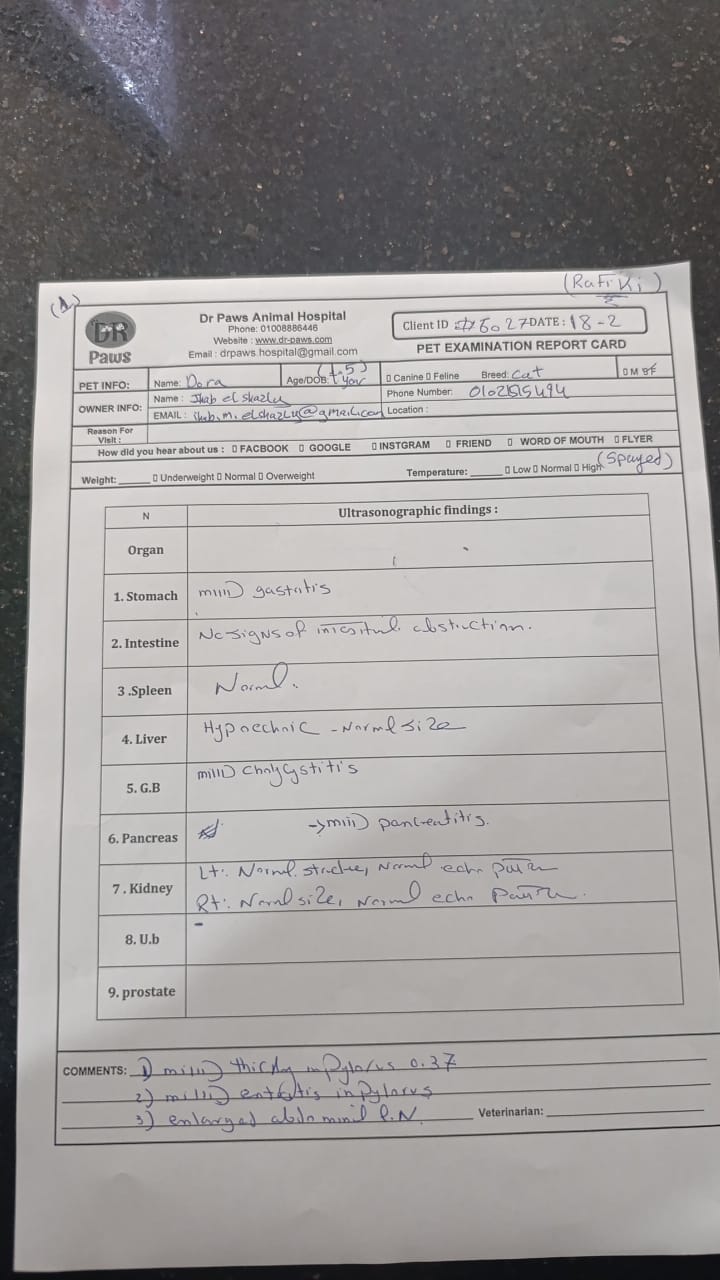 (1)
(Rafiki)
DR
Paws
Dr Paws Animal Hospital
Phone: 01008886446
Website : www.dr-paws.com
Email : drpaws.hospital@gmail.com
Client ID #6027 DATE : 18-2
PET EXAMINATION REPORT CARD
PET INFO: Name: Dora Age/DOB: (1.5) year ▯ Canine ▯ Feline Breed: Cat ▯ M ▯ F
OWNER INFO: Name : Ihab el shazly Phone Number:
EMAIL : ihab.m.elshazly@gmail.com Location :
Reason For Visit :
How did you hear about us : ▯ FACBOOK ▯ GOOGLE ▯ INSTGRAM ▯ FRIEND ▯ WORD OF MOUTH ▯ FLYER
(Spayed)
Weight: ______ ▯ Underweight ▯ Normal ▯ Overweight Temperature: ______ ▯ Low ▯ Normal ▯ High
N Ultrasonographic findings :
Organ
1. Stomach mild gastritis
2. Intestine No signs of intestinal obstruction.
3 .Spleen Normal.
4. Liver Hypoechoic - Normal size
5. G.B mild
6. Pancreas → mild pancreatitis.
7 . Kidney Lt: Normal structure, Normal echo pattern
Rt: Normal size, Normal echo Pattern.
8. U.b -
9. prostate
COMMENTS: 1) mild in Pylorus 0.37
2) mild in Pylorus
3) enlarged abdominal L.N. Veterinarian: